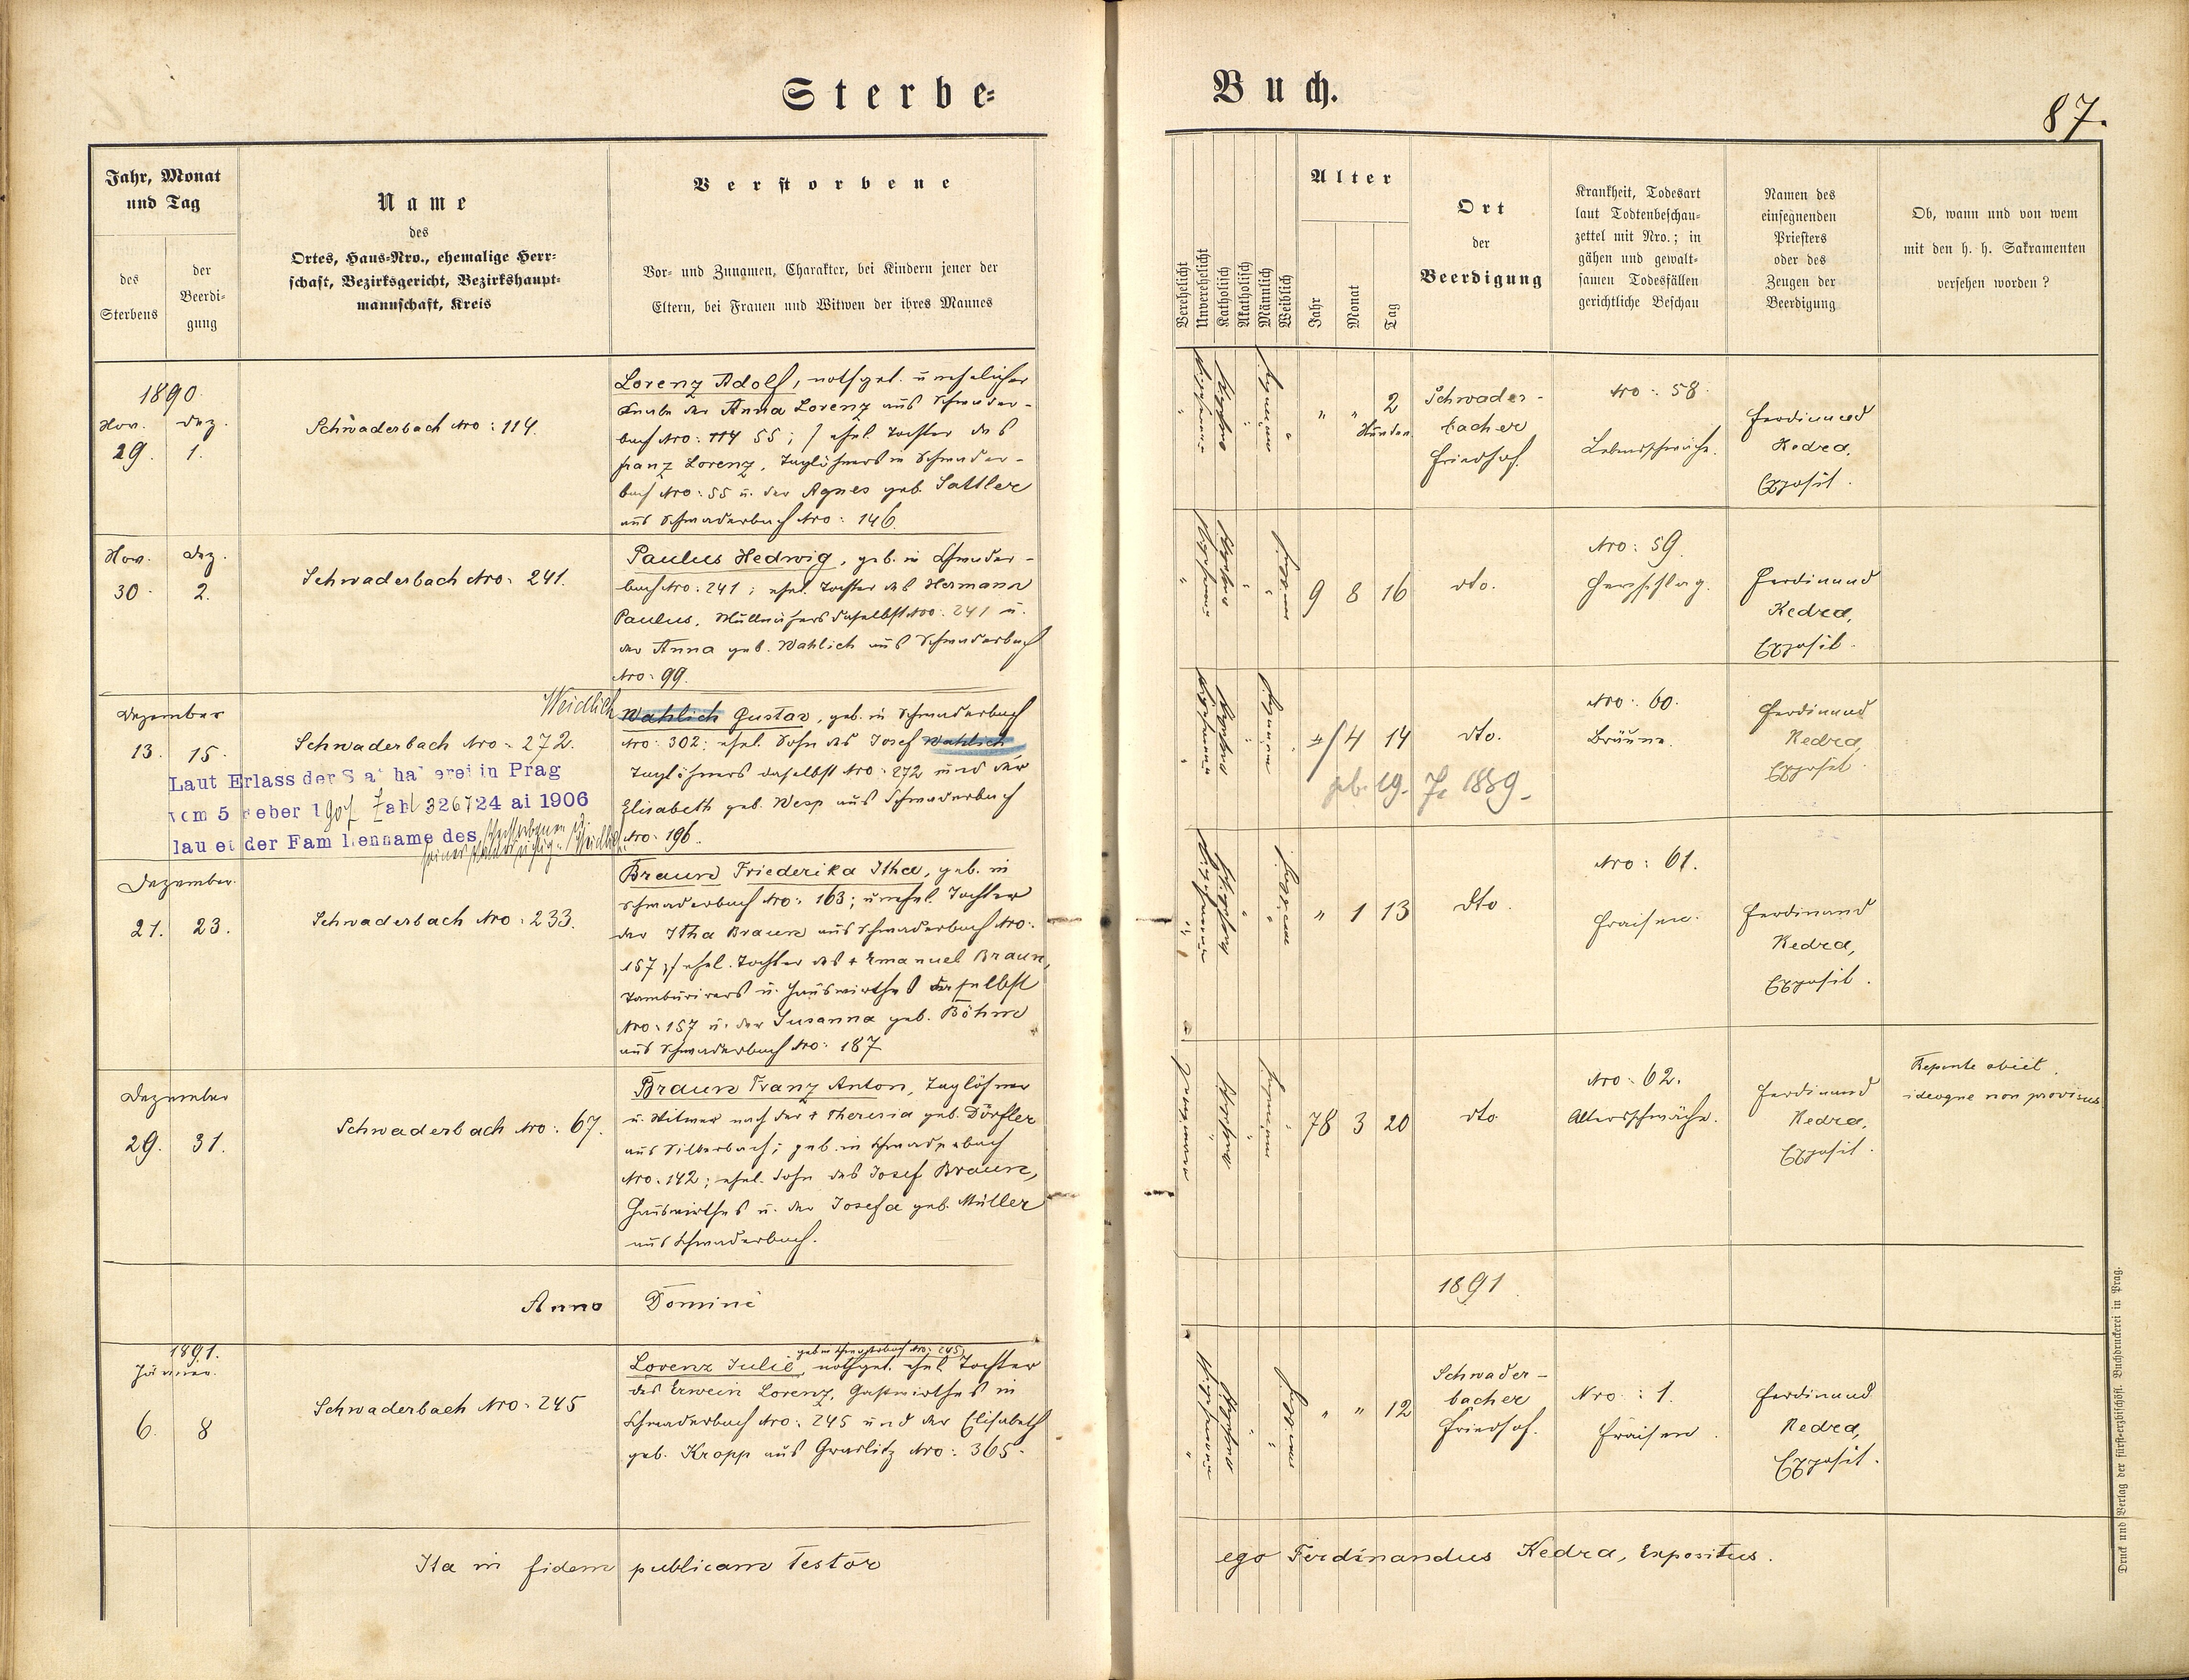 Sterbe=
Buch.
87.
Jahr, Monat
und Tag
des
Sterbens
der
Beerdi-
gung
Name
des
Ortes, Haus-Nro., ehemalige Herr-
schaft, Bezirksgericht, Bezirkshaupt-
mannschaft, Kreis
Verstorbene
Vor- und Zunamen, Charakter, bei Kindern jener der
Eltern, bei Frauen und Witwen der ihres Mannes
Verehelicht
Unverehelicht
Katholisch
Akatholisch
Männlich
Weiblich
Alter
Jahr
Monat
Tag
Ort
der
Beerdigung
Krankheit, Todesart
laut Todtenbeschau-
zettel mit Nro.; in
gähen und gewalt-
samen Todesfällen
gerichtliche Beschau
Namen des
einsegnenden
Priesters
oder des
Zeugen der
Beerdigung
Ob, wann und von wem
mit den h. h. Sakramenten
versehen worden?
1890.
Nov. Dez.
29. 1.
Schwaderbach Nro: 114.
Lorenz Adolf, nothget. unehelicher
Knabe der Anna Lorenz aus Schwader-
bach Nro: 114 55; / ehel. Tochter des
Franz Lorenz, Taglöhners in Schwader-
bach Nro: 55 u. der Agnes geb. Sattler
aus Schwaderbach Nro: 146.
" " 2
Stunden
Schwader-
bacher
Friedhof.
Nro: 58.
Lebensschwäche.
Ferdinand
Kedra,
Exposit.
Nov. Dez.
30. 2.
Schwaderbach Nro: 241.
Paulus Hedwig, geb. in Schwader-
bach Nro: 241; ehel. Tochter des Hermann
Paulus, daselbst Nro: 241 u.
der Anna geb. Wahlich aus Schwaderbach
Nro: 99.
9 8 16
dto.
Nro: 59.
Herzschlag.
Ferdinand
Kedra,
Exposit.
Dezember
13. 15.
Schwaderbach Nro: 272.
Weidlich
Wahlich Gustav, geb. in Schwaderbach
Nro: 302; ehel. Sohn des Josef Wahlich
Taglöhners daselbst Nro: 272 und der
Elisabeth geb. Wesp aus Schwaderbach
Nro: 196.
Laut Erlass der Statthalterei in Prag
vom 5 feber 1907 Zahl 326724 ai 1906
lautet der Familienname des Verstorbenen u.
seines Vaters richtig "Weidlich".
1/ 4 14
geb. 29. 7. 1889.
dto.
Nro: 60.
Bräune.
Ferdinand
Kedra,
Exposit.
Dezember.
21. 23.
Schwaderbach Nro: 233.
Braun Friederika Itha, geb. in
Schwaderbach Nro: 163; unehel. Tochter
der Itha Braun aus Schwaderbach Nro:
157; / ehel. Tochter des + Emanuel Braun,
Tambürirers u. Hauswirthes daselbst
Nro: 157 u. der Susanna geb. Böhm
aus Schwaderbach Nro: 187
" 1 13
dto.
Nro: 61.
Fraisen.
Ferdinand
Kedra,
Exposit.
Dezember
29. 31.
Schwaderbach Nro: 67.
Braun Franz Anton, Taglöhner
u. Witwer nach der + Theresia geb. Dörfler
aus Silberbach; geb. in Schwaderbach
Nro: 142; ehel. Sohn des Josef Braun,
Hauswirthes u. der Josefa geb. Müller
aus Schwaderbach.
78 3 20
dto
Nro: 62.
Altersschwäche.
Ferdinand
Kedra,
Exposit.
Repente obiit
ideoque non provisus
Anno Domini 1891.
1891.
Jänner.
6. 8
Schwaderbach Nro: 245
geb. in Schwaderbach Nro: 245,
Lorenz Julie, nothget. ehel. Tochter
des Erwein Lorenz, Gastwirthes in
Schwaderbach Nro: 245 und der Elisabeth
geb. Kropp aus Graslitz Nro: 365.
" " 12
Schwader-
bacher
Friedhof.
Nro: 1.
Fraisen.
Ferdinand
Kedra,
Exposit.
Ita in fidem publicam Testor
ego Ferdinandus Kedra, Expositus.
Druck und Verlag der fürst-erzbischöfl. Buchdruckerei in Prag.